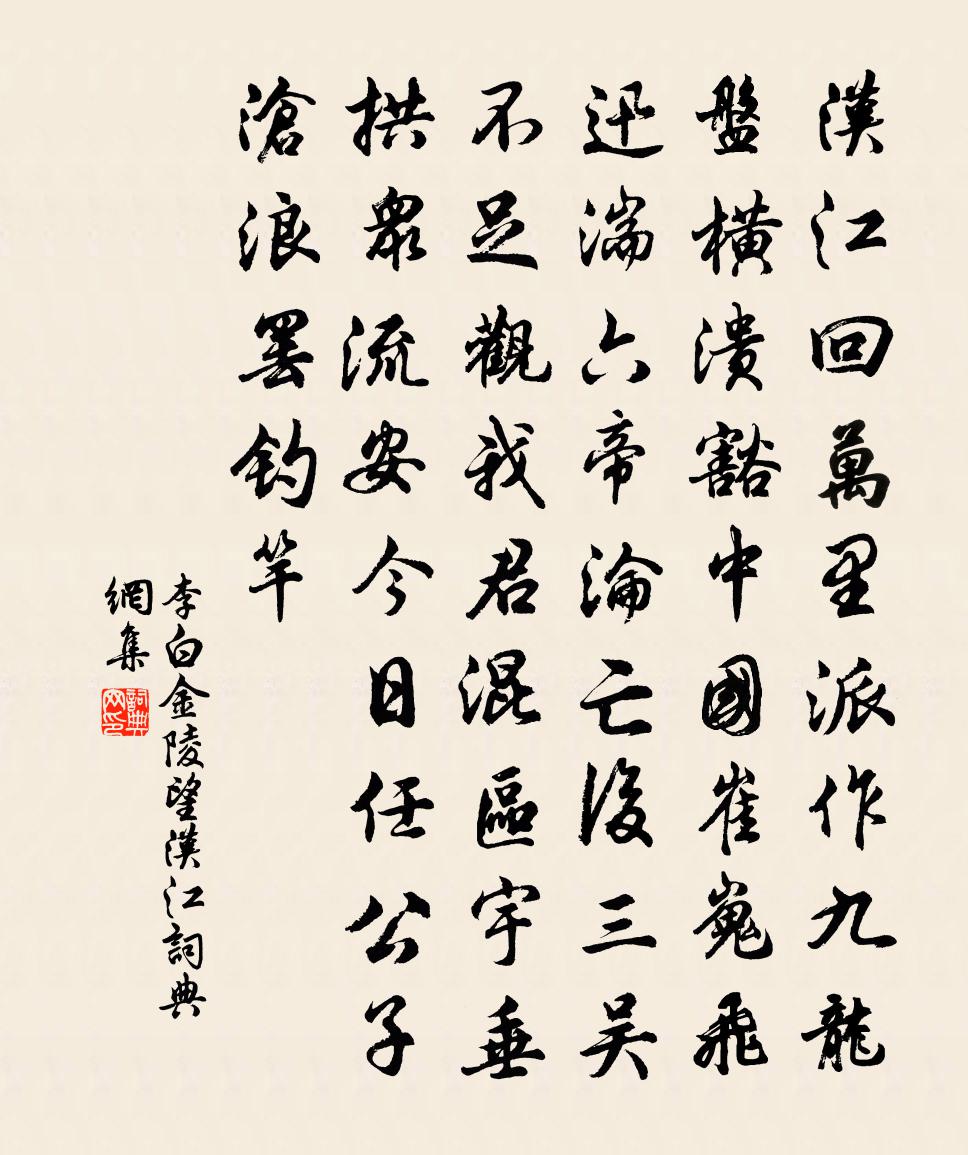 漢江回萬里派作九龍
盤橫潰豁中國崔嵬飛
迅湍六帝淪亡後三吴
不足觀我君混區宇垂
拱衆流安今日任公子
滄浪罷釣竿
李白金陵望漢江詞典
網集
詞典
网印